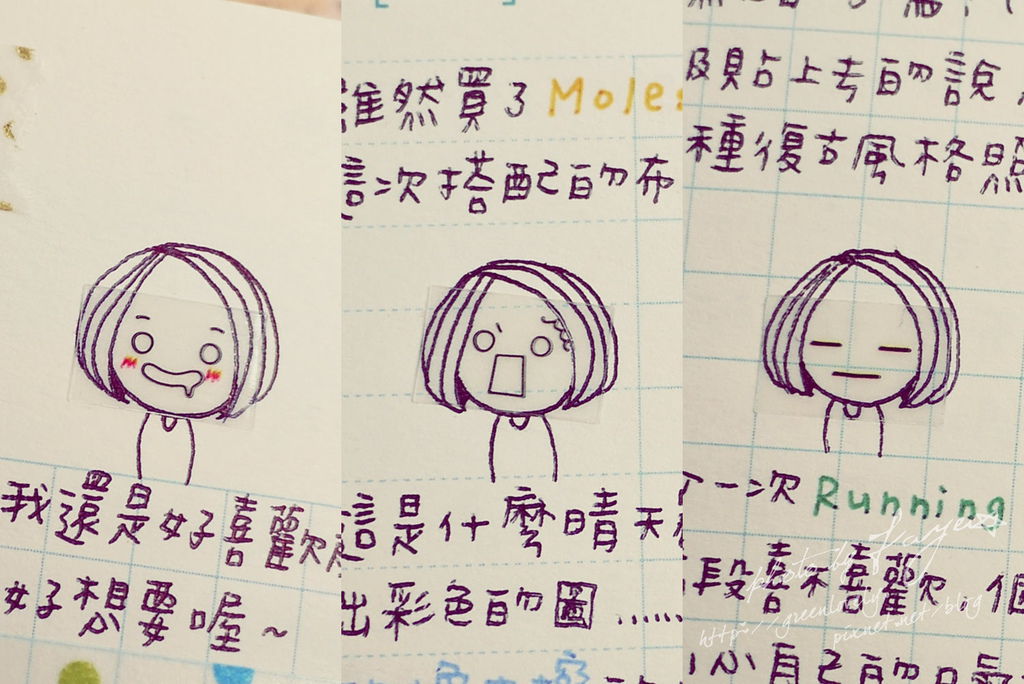 我還是好喜歡
好想要喔~
雖然買了Moles
這次搭配的布
這是什麼晴天
出彩色的圖......
貼上去的說
種復古風格照
一次Running
段喜不喜歡 個
自己的
photo by Fayeus
http://greenlady
pixnet.net/blog